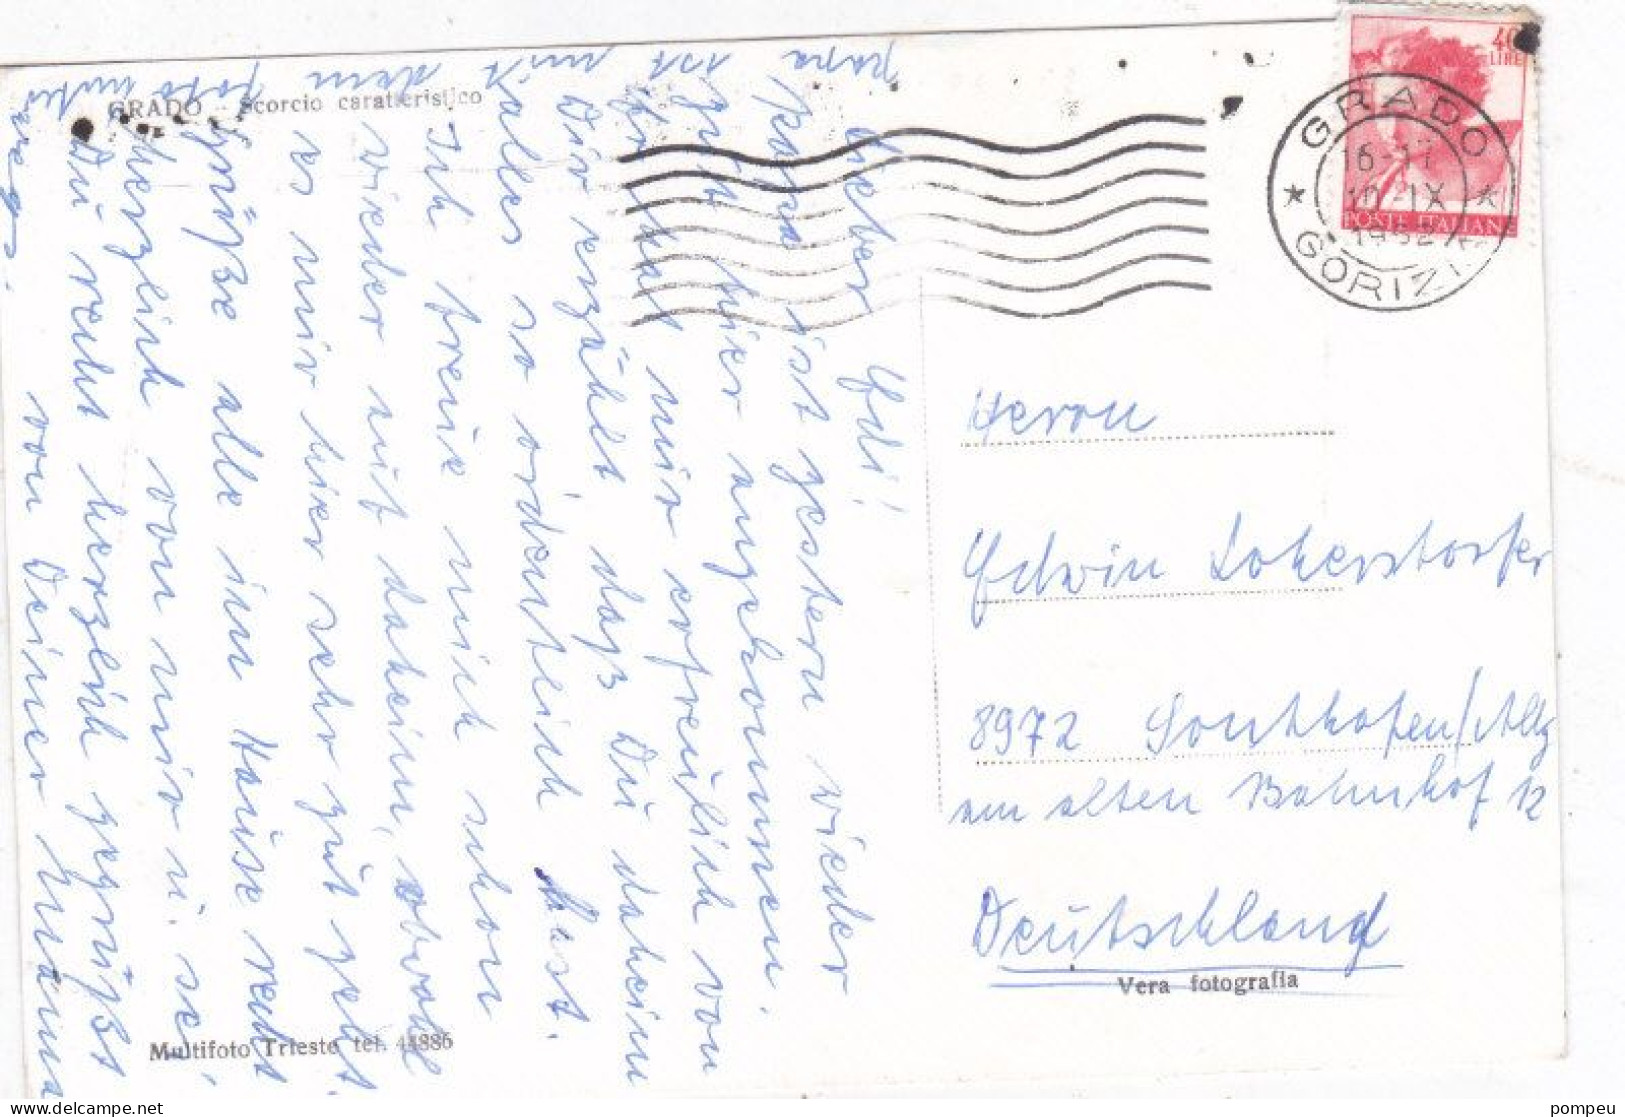 GRADO - Scorcio caratteristico
Lieber Edi!
papa ist gestern wieder
gut hier angekommen.
Er hat mir erfreulich von
Dir erzählt, daß Du daheim
alles so ordentlich hast.
Ich freue mich schon
wieder auf daheim, obwohl
es mir hier sehr gut geht.
Grüße alle im Hause recht
herzlich von mir u. sei
Du recht herzlich gegrüßt
von Deiner Mama
papa ist mit dem
Foto unterwegs.
40
LIRE
POSTE ITALIANE
GRADO
16-17
IX
GORIZIA
Herrn
Edwin Lokerstorfer
8972 Sonthofen/Allg
am alten Bahnhof 12
Deutschland
Vera fotografia
Multifoto Trieste tel. 44886
pompeu